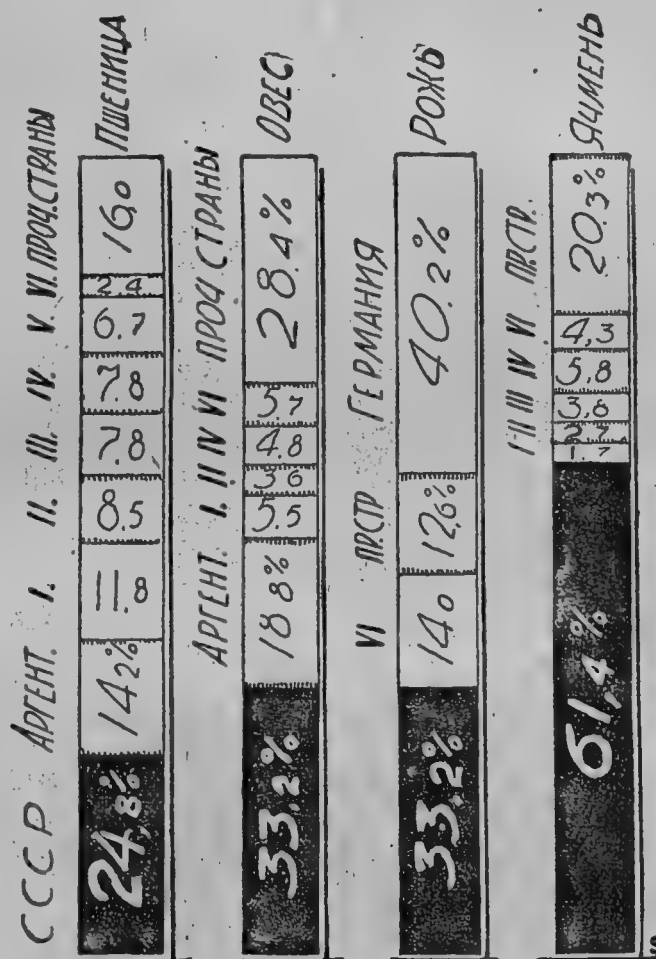 СССР АРГЕНТ. I. II. III. IV. V. VI. ПРОЧ.СТРАНЫ
24,8% 14.2% 11.8 8.5 7.8 7.8 6.7 2.4 16,0 ПШЕНИЦА
АРГЕНТ. I. II IV VI ПРОЧ СТРАНЫ
33.2% 18.8% 5.5 3.6 4.8 5.7 28.4% ОВЕС
VI ПР.СТР ГЕРМАНИЯ
33.2% 14.0 12.6% 40.2% РОЖЬ
I II III IV VI ПР.СТР.
61,4% 1.7 2.7 3,8 5,8 4,3 20.3% ЯЧМЕНЬ